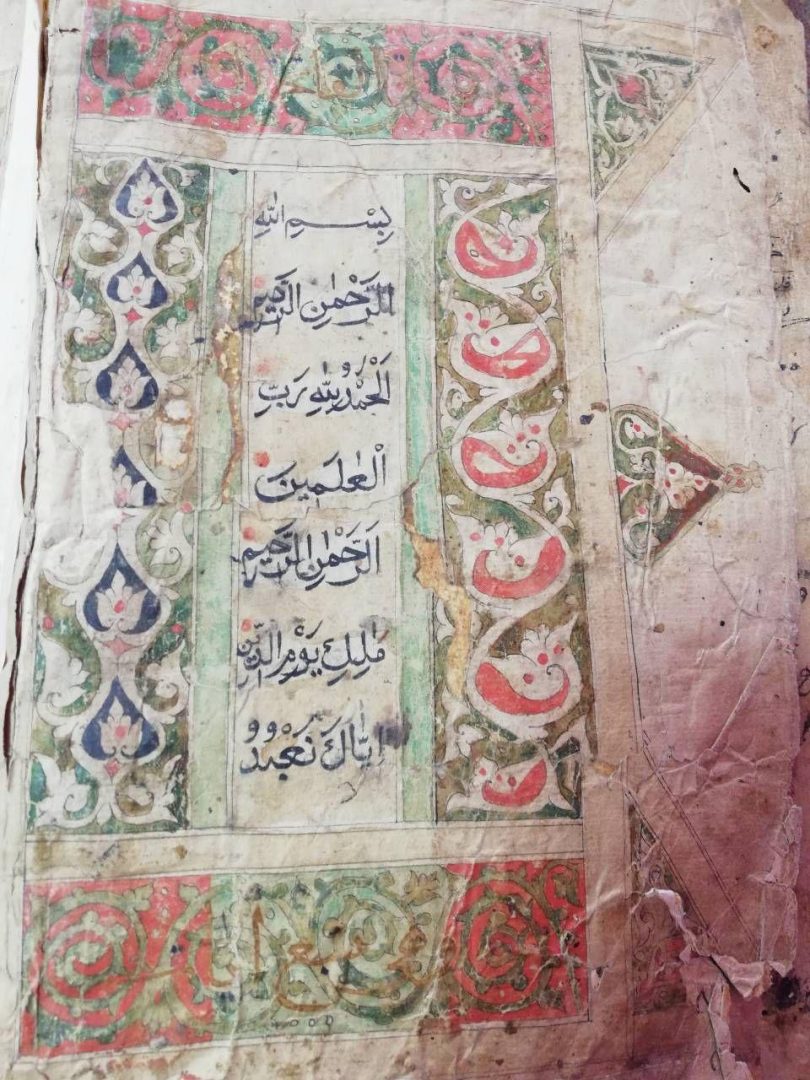 بِسْمِ اللّٰهِ
الرَّحْمٰنِ الرَّحِيمِ
اَلْحَمْدُ لِلّٰهِ رَبِّ
الْعٰلَمِينَ
اَلرَّحْمٰنِ الرَّحِيمِ
مٰلِكِ يَوْمِ الدِّينِ
اِيَّاكَ نَعْبُدُ
وهي سبع آيات